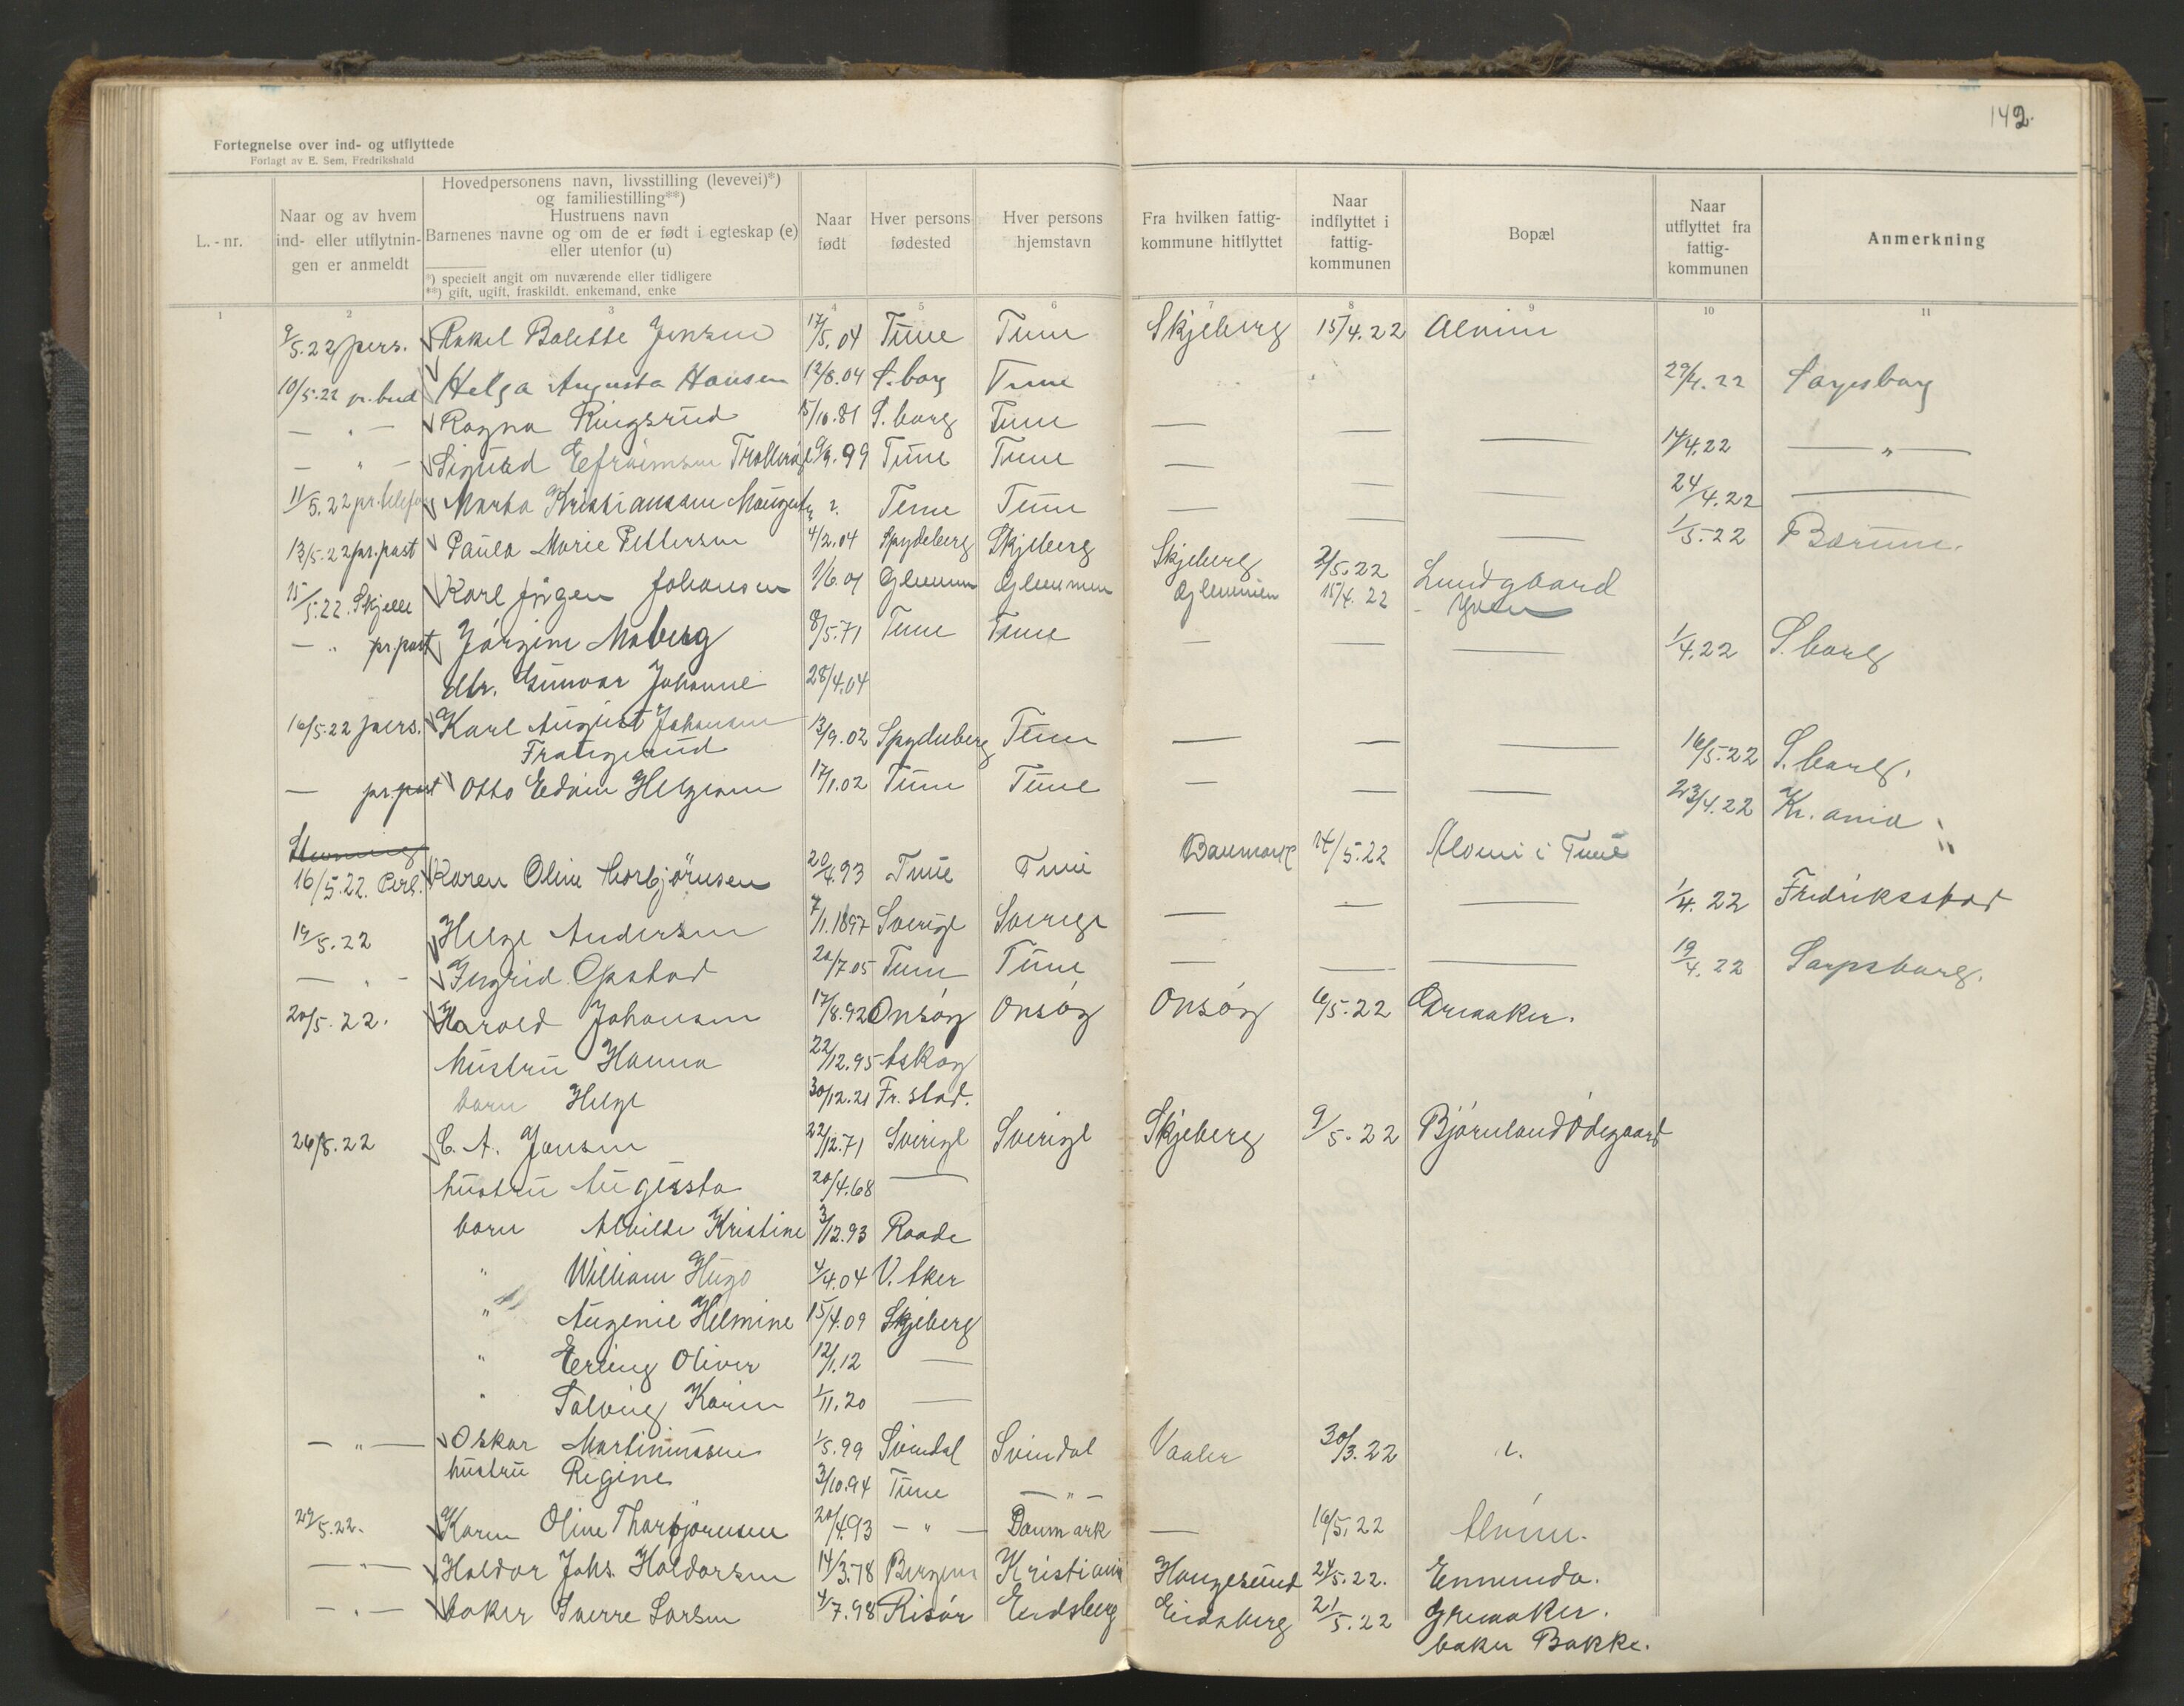 142.
Fortegnelse over ind- og utflyttede
Forlagt av E. Sem, Fredrikshald
L.-nr.
Naar og av hvem ind- eller utflytnin- gen er anmeldt
Hovedpersonens navn, livsstilling (levevei)*)
og familiestilling**)
Hustruens navn
Barnenes navne og om de er født i egteskap (e)
eller utenfor (u)
*) specielt angit om nuværende eller tidligere
**) gift, ugift, fraskildt. enkemand, enke
Naar født
Hver persons fødested
Hver persons hjemstavn
Fra hvilken fattig- kommune hitflyttet
Naar indflyttet i fattig- kommunen
Bopæl
Naar utflyttet fra fattig- kommunen
Anmerkning
1 2 3 4 5 6 7 8 9 10 11
9/5.22 pers. Rakel Bolette Jensen 17/5.04 Tune Tune Skjeberg 15/4.22 Alvim
10/5.22 pr. bud Helga Augusta Hansen 12/8.04 S.borg Tune 29/4.22 Sarpsborg
— " — Ragna Ringsrud 15/10.81 S.borg Tune — — — 14/4.22 — " —
— " — Sigurd Efraimsen 9/9.99 Tune Tune — — — 24/4.22 —
11/5.22 pr. telefon Marta Kristiansen ?. Tune Tune — — — 1/5.22 Bærum.
13/5.22 pr. post Paula Marie Pettersen 4/2.04 Spydeberg Skjeberg Skjeberg 2/5.22 Lundgaard
15/5.22. Skjelle Karl Jørgen Johansen 1/6.01 Glemmen Glemmen Glemmen 15/4.22 Yven
— " pr. post Jørgine Moberg 8/5.71 Tune Tune — — — 1/4.22 S.borg
dtr. Gunvor Johanne 28/4.04
16/5.22 pers. Karl August Johansen 13/9.02 Spydeberg Tune — — — 16/5.22 S.borg.
Frangsrud
— pr. post Otto Edvin Helgesen 17/1.02 Tune Tune — — — 23/4.22 Kr.ania
16/5.22. Karen Oline Thorbjørnsen 20/4.93 Tune Tune Danmark 14/5.22 Alvim i Tune
19/5.22 Helge Andersen 7/1.1897 Sverige Sverige — — — 1/4.22 Fredriksstad
— " — Ingrid Opstad 20/7.05 Tune Tune — — — 19/4.22 Sarpsborg.
20/5.22. Harald Johansen 17/8.92 Onsøy Onsøy Onsøy 6/5.22 Greaaker.
hustru Hanna 22/12.95 Askog
barn Helge 30/12.21 Fr.stad.
26/5.22 C. A. Jansen 22/12.71 Sverige Sverige Skjeberg 9/5.22 Bjørnland Ødegaard
hustru Augusta 20/4.68 —
barn Alvilde Kristine 3/12.93 Raade
" William Hugo 4/4.04 V. Aker
" Augenie Helmine 15/4.09 Skjeberg
" Erling Oliver 12/1.12 —
" Solveig Karin 1/11.20 —
— " — Oskar Martinussen 1/5.99 Svindal Svindal Vaaler 30/3.22 ?.
hustru Regine 3/10.94 Tune — " —
29/5.22. Karen Oline Thorbjørnsen 20/4.93 — " — Danmark — 16/5.22 Alvim.
— " — Haldor Johs. Haldorsen 14/3.78 Bergen Kristiania Haugesund 24/5.22. Enmunda.
— " — baker Sverre Larsen 4/7.98 Risør Eidsberg Eidsberg 21/5.22 Greaaker.
baker Bakke.